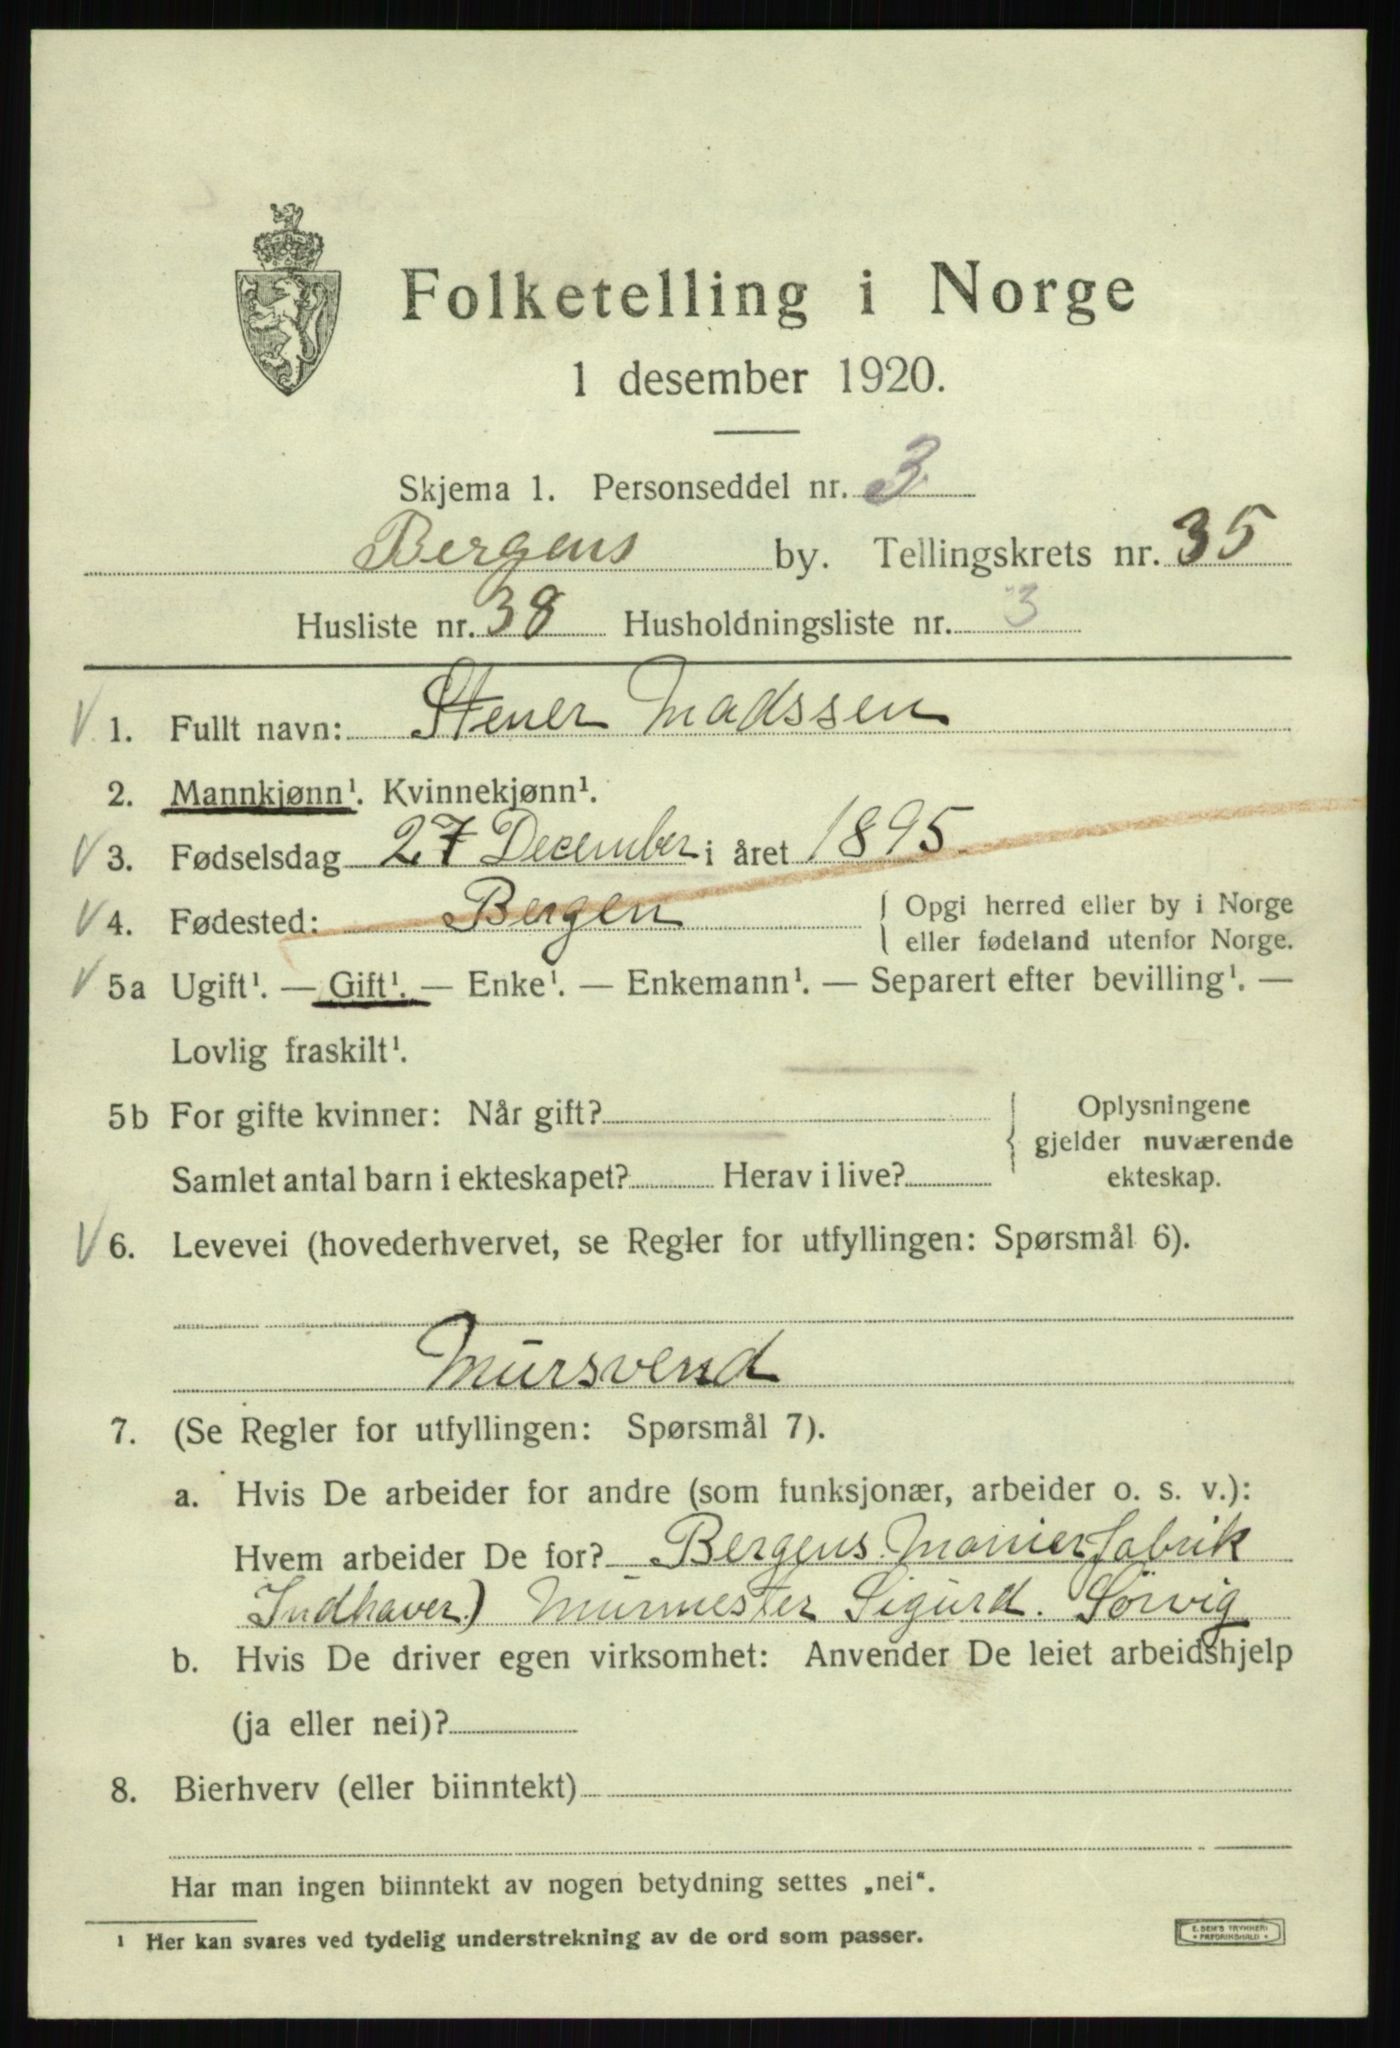 Folketelling i Norge
1 desember 1920.
Skjema 1. Personseddel nr. 3
Bergens by. Tellingskrets nr. 35
Husliste nr. 38 Husholdningsliste nr. 3
1. Fullt navn: Stener Madssen
2. Mannkjønn¹. Kvinnekjønn¹.
3. Fødselsdag 27 December i året 1895
4. Fødested: Bergen { Opgi herred eller by i Norge
eller fødeland utenfor Norge.
5a Ugift¹. — Gift¹. — Enke¹. — Enkemann¹. — Separert efter bevilling¹. —
Lovlig fraskilt¹.
5b For gifte kvinner: Når gift? { Oplysningene
gjelder nuværende
Samlet antal barn i ekteskapet? Herav i live? ekteskap.
6. Levevei (hovederhvervet, se Regler for utfyllingen: Spørsmål 6).
Mursvend
7. (Se Regler for utfyllingen: Spørsmål 7).
a. Hvis De arbeider for andre (som funksjonær, arbeider o. s. v.):
Hvem arbeider De for? Bergens Monierfabrik
Indhaver) Murmester Sigurd. Sörvig
b. Hvis De driver egen virksomhet: Anvender De leiet arbeidshjelp
(ja eller nei)?
8. Bierhverv (eller biinntekt)
Har man ingen biinntekt av nogen betydning settes „nei“.
¹ Her kan svares ved tydelig understrekning av de ord som passer.
E. SEM'S TRYKKERI
FREDRIKSHALD